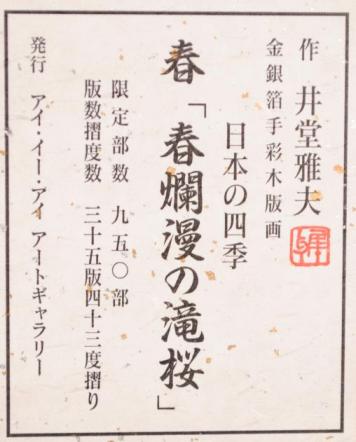 作 井堂雅夫
金銀箔手彩木版画
日本の四季
春「春爛漫の滝桜」
限定部数 九五〇部
版数摺度数 三十五版四十三度摺り
発行 アイ・イー・アイ アートギャラリー